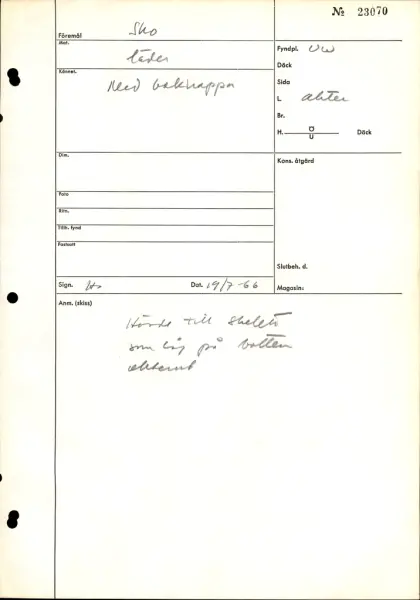 № 23070
Föremål Sko
Mat. läder
Fyndpl. UW
Däck
Kännet. Med bakkappa
Sida
L akter
Br.
H. Ö U Däck
Dim.
Kons. åtgärd
Foto
Ritn.
Tillh. fynd
Fastsatt
Slutbeh. d.
Sign. Dat. 19/7-66 Magasin:
Anm. (skiss)
Hörde till skelett
som låg på botten
akterut